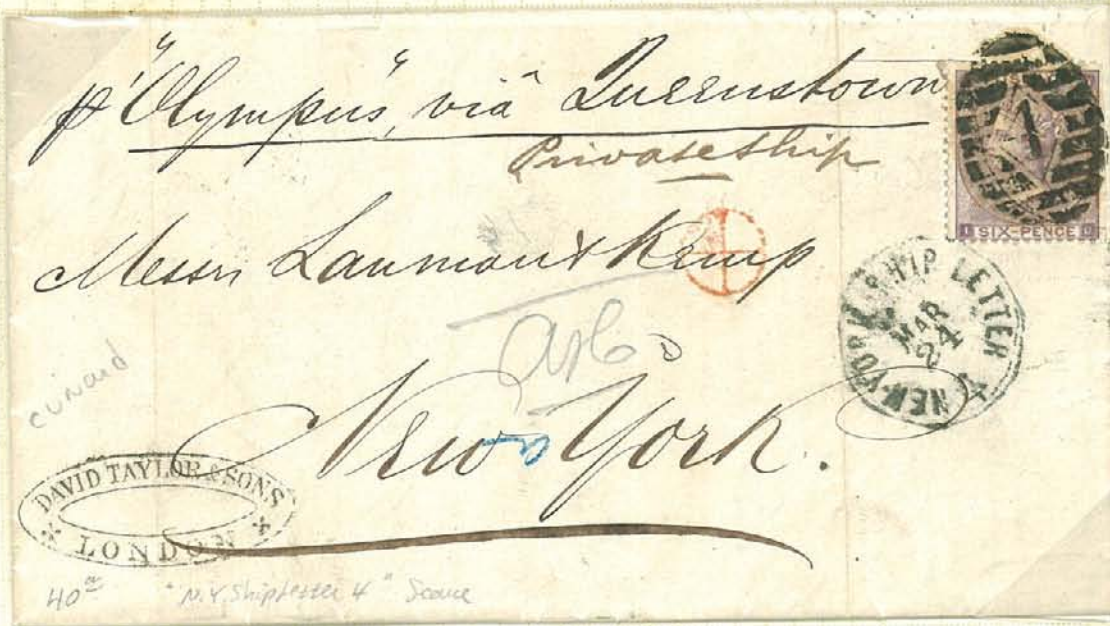 p "Olympus," via Queenstown
Private Ship
I SIX-PENCE
Messrs Lanman & Kemp
NEW-YORK SHIP LETTER 4
MAR
24
cunard
New York.
DAVID TAYLOR & SONS
LONDON
40
"N.Y. Ship Letter 4" Scarce